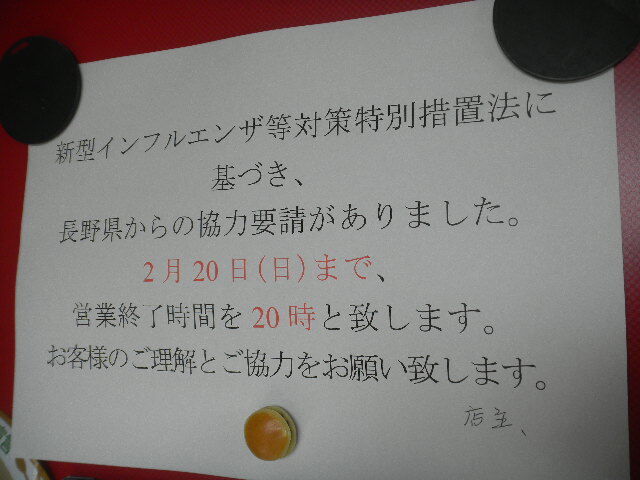 新型インフルエンザ等対策特別措置法に
基づき、
長野県からの協力要請がありました。
2月20日(日)まで、
営業終了時間を20時と致します。
お客様のご理解とご協力をお願い致します。
店主、